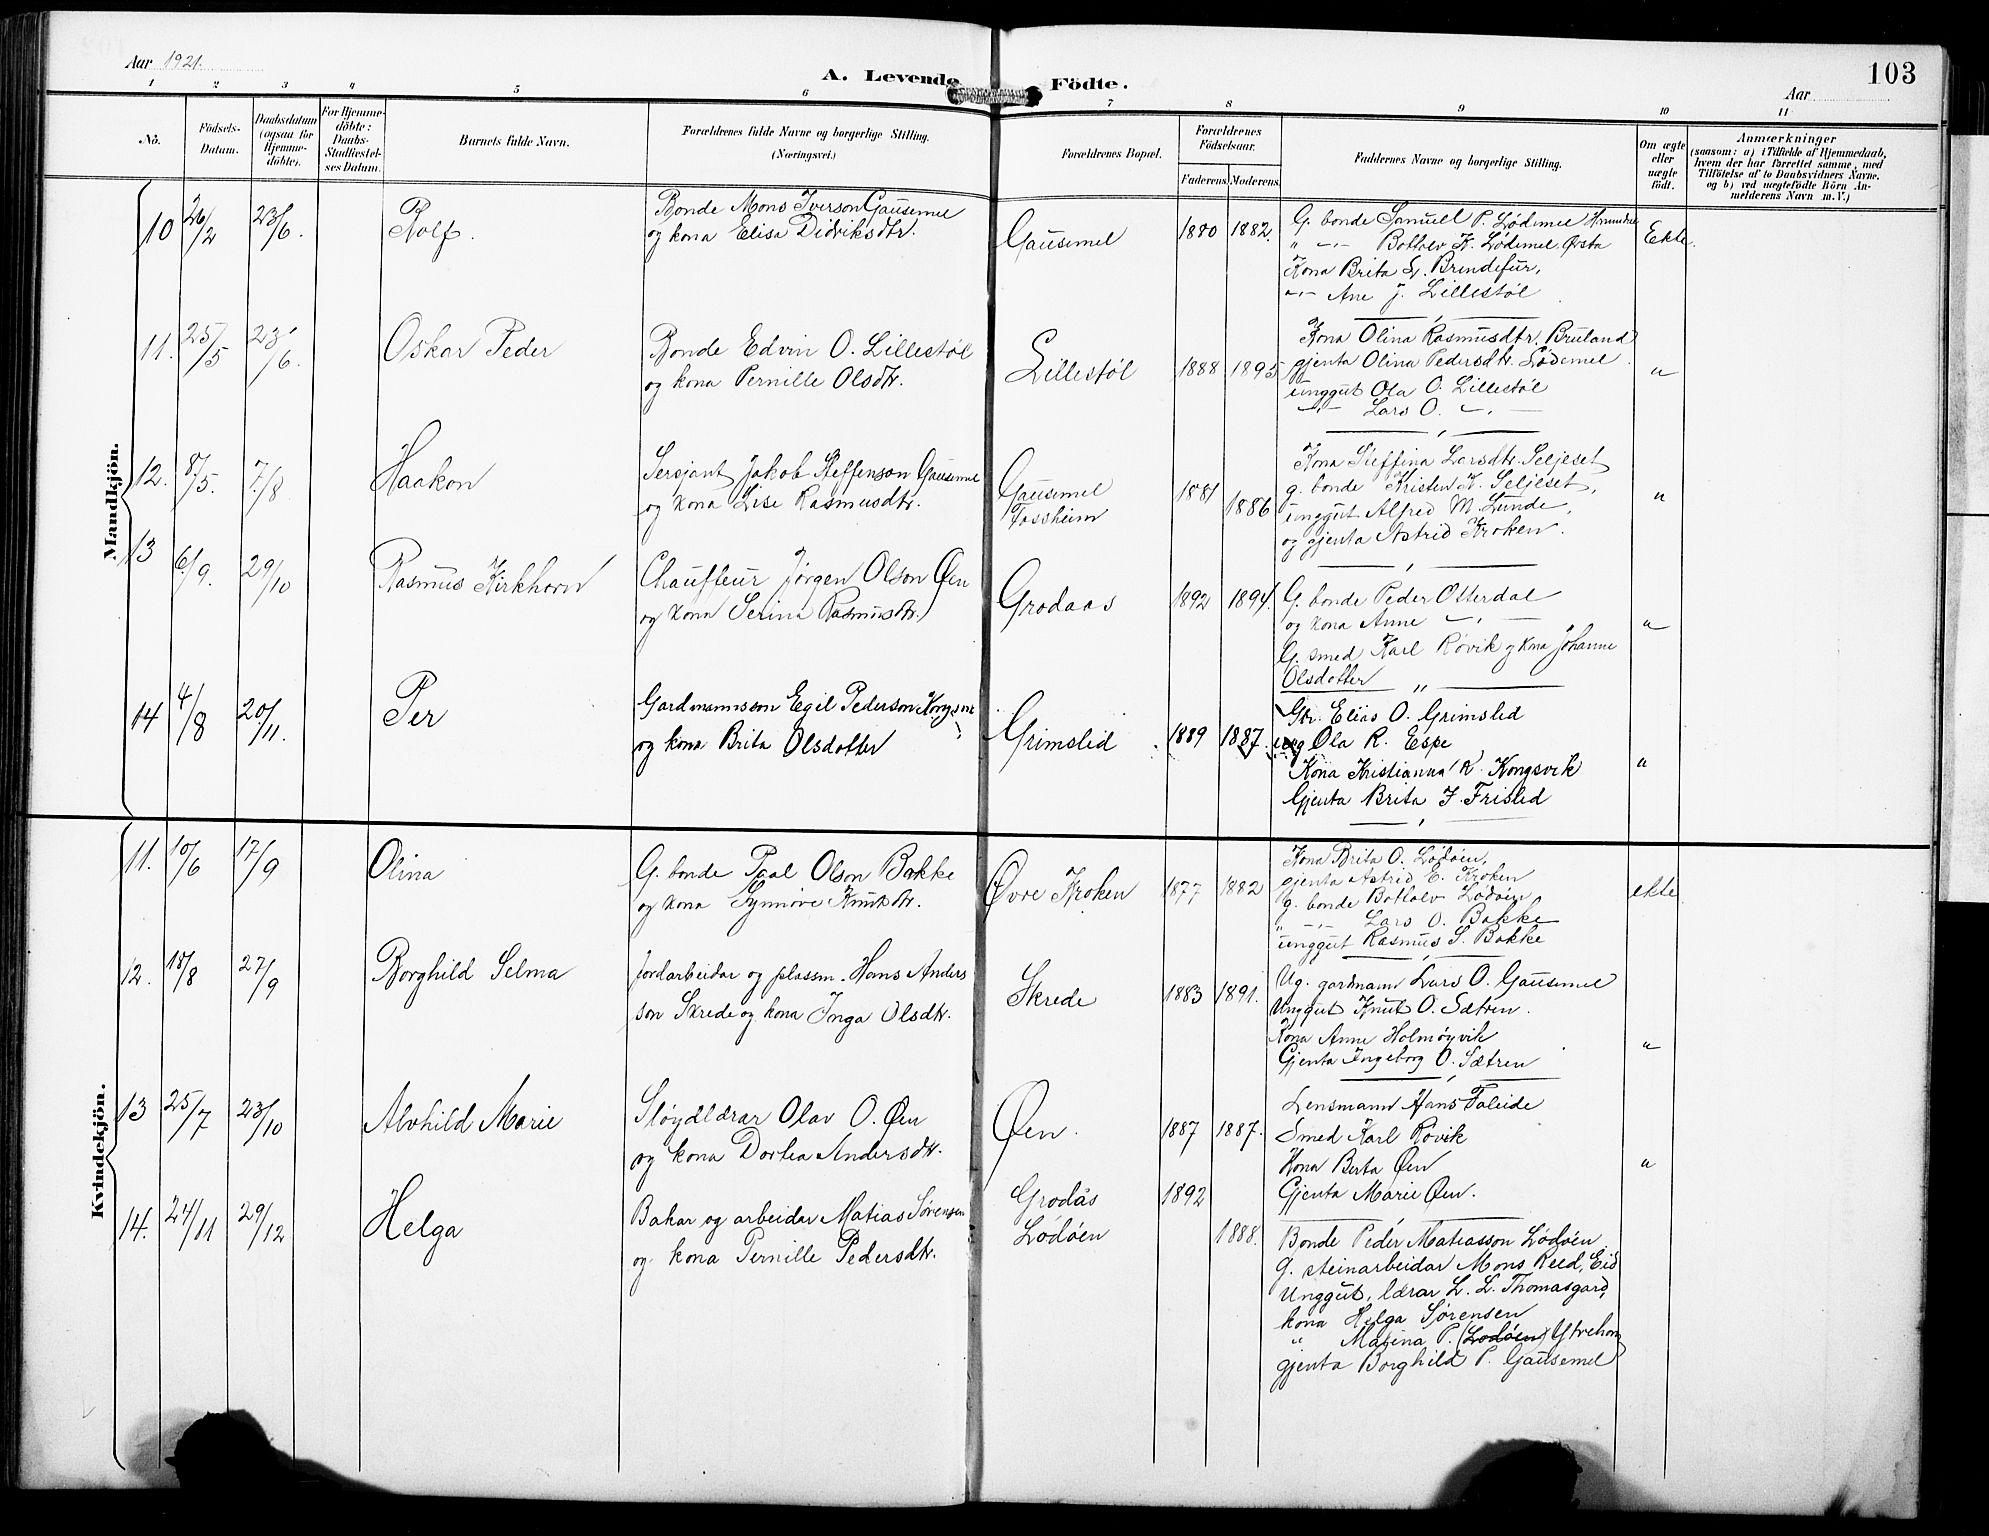 Aar 1921.
A. Levende Födte.
103
Aar
1 2 3 4 5 6 7 8 9 10 11
No.
Födsels-Datum.
Daabsdatum (ogsaa for Hjemme-döbte).
For Hjemme-döbte: Daabs-Stadfæstel-ses Datum.
Barnets fulde Navn.
Forældrenes fulde Navne og borgerlige Stilling.
(Næringsvei.)
Forældrenes Bopæl.
Forældrenes Födselsaar.
Faderens. Moderens.
Faddernes Navne og borgerlige Stilling.
Om ægte eller uægte födt.
Anmærkninger
(saasom: a) i Tilfælde af Hjemmedaab, hvem der har forrettet samme, med Tilföielse af to Daabsvidners Navne. og b) ved uægtefödte Börn An-melderens Navn m. V.)
Mandkjön.
10 26/2 23/6. Rolf.
Bonde Mons Iverson Gausemel
og kona Elisa Didriksdtr.
Gausemel 1880 1882.
G. bonde Samuell P. Lødemel
" -"- Bottolv K. Lødemel,
Kona Brita L. Brendefur,
-"- Ane J. Lillestøl
Ekte.
11. 25/5 23/6. Oskar Peder
Bonde Edvin O. Lillestøl
og kona Pernille Olsdtr.
Lillestøl 1888 1895
Kona Olina Rasmusdtr. Bruland
gjenta Olina Pedersdtr. Lødemel
unggut Ola O. Lillestøl
-"- Lars O. -"-
"
12. 8/5. 7/8 Haakon
Sersjant Jakob Steffenson Gausemel
og kona Lise Rasmusdtr.
Gausemel
Tossheim
1881 1886
Kona Steffina Larsdtr. Seljeset
g. bonde Kristen K. Seljeset,
unggut Alfred M. Lunde,
og gjenta Astrid Kroken.
"
13 6/9. 29/10 Rasmus Kirkhorn
Chauffeur Jørgen Olson Øen
og kona Serina Rasmusdtr.
Grodaas 1892 1894.
G. bonde Peder Otterdal
og kona Anne -"-
G. smed Karl Røvik og kona Johanne
Olsdotter
"
14 4/8 20/11. Per
Gardmannsson Egil Pederson Kongsvik
og kona Brita Olsdotter
Grimslid 1889 1887.
Gbr. Elias O. Grimslid
ung Ola R. Espe
Kona Kristianna R. Kongsvik
Gjenta Brita J. Frislid
"
Kvindekjön.
11. 10/6 17/9 Olina
G. bonde Paal Olson Bakke
og kona Synnøve Knutsdtr.
Øvre Kroken 1877 1882
Kona Brita O. Lødøen,
gjenta Astrid E. Kroken
g. bonde Bottolv Lødøen
" -"- Lars O. Bakke
unggut Rasmus S. Bakke
ekte
12. 18/8 27/9 Borghild Selma
Jordarbeidar og plassm. Hans Anders
son Skrede og kona Inga Olsdtr.
Skrede 1883 1891.
Ug. gardmann Lars O. Gausemel
Unggut Knut O. Sætren.
Kona Anne Holmøyvik
Gjenta Ingeborg O. Sætren
"
13 25/7 23/10 Alvhild Marie
Sløydlærar Olav O. Øen
og kona Dortea Andersdtr.
Øen. 1887 1887.
Lensmann Hans Faleide
Smed Karl Røvik
Kona Berta Øen
Gjenta Marie Øen.
"
14. 24/11 29/12 Helga
Bakar og arbeidar Matias Sørensen
og kona Pernille Pedersdtr.
Grodås
Lødøen
1892 1888.
Bonde Peder Matiasson Lødøen
g. steinarbeidar Mons Reed, Eid
Unggut, lærar L. L. Thomasgard,
kona Helga Sørensen
" Matina P. (Lødøen) Ytrehorn
gjenta Borghild P. Gausemel